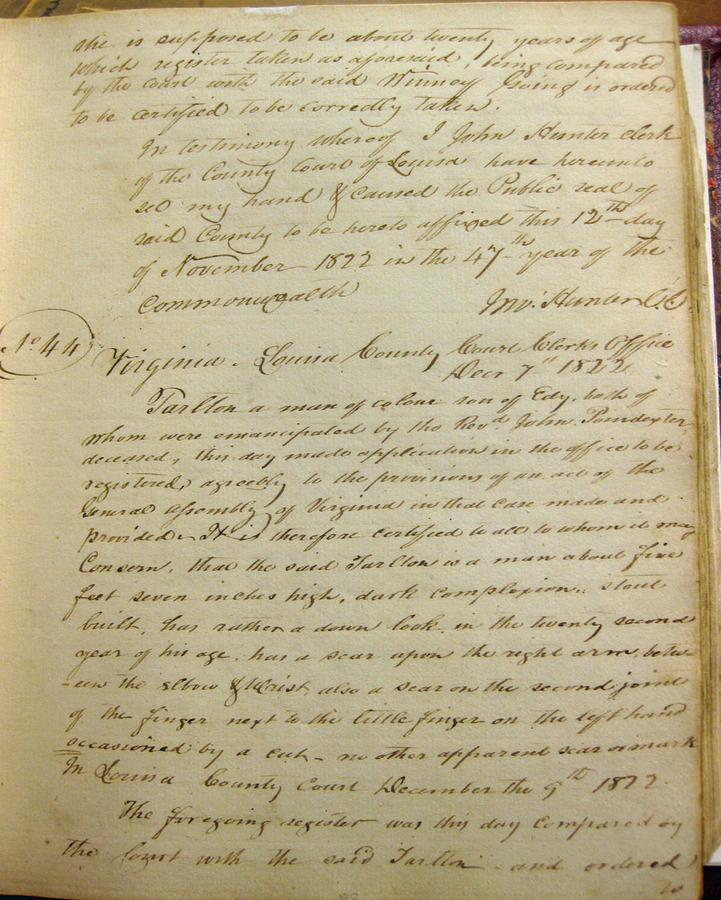 she is supposed to be about twenty years of age
which register taken as aforesaid, being compared
by the court with the said Winney Going is ordered
to be certified to be correctly taken.
In testimony whereof I John Hunter clerk
of the County Court of Louisa have hereunto
set my hand & caused the Public seal of
said County to be hereto affixed this 12th day
of November 1822 in the 47th year of the
Commonwealth Jno. Hunter C.C.
No. 44
Virginia. Louisa County Court Clerks Office
Decr 7th 1822
Tarlton a man of colour son of Edy, both of
whom were emancipated by the Revd. John Poindexter
deceased, this day made application in the office to be
registered, agreebly to the provisions of an act of the
General Assembly of Virginia in that case made and
provided. It is therefore certified to all to whom it may
Concern, that the said Tarlton is a man about five
feet seven inches high, dark complexion, stout
built, has rather a down look, in the twenty second
year of his age. has a scar upon the right arm, betw-
-een the elbow & Wrist, also a scar on the second joint
of the finger next to the little finger on the left hand
occasioned by a cut - no other apparent scar or mark
In Louisa County Court December the 9th 1822.
The foregoing register was this day compared by
the Court with the said Tarlton and ordered
to